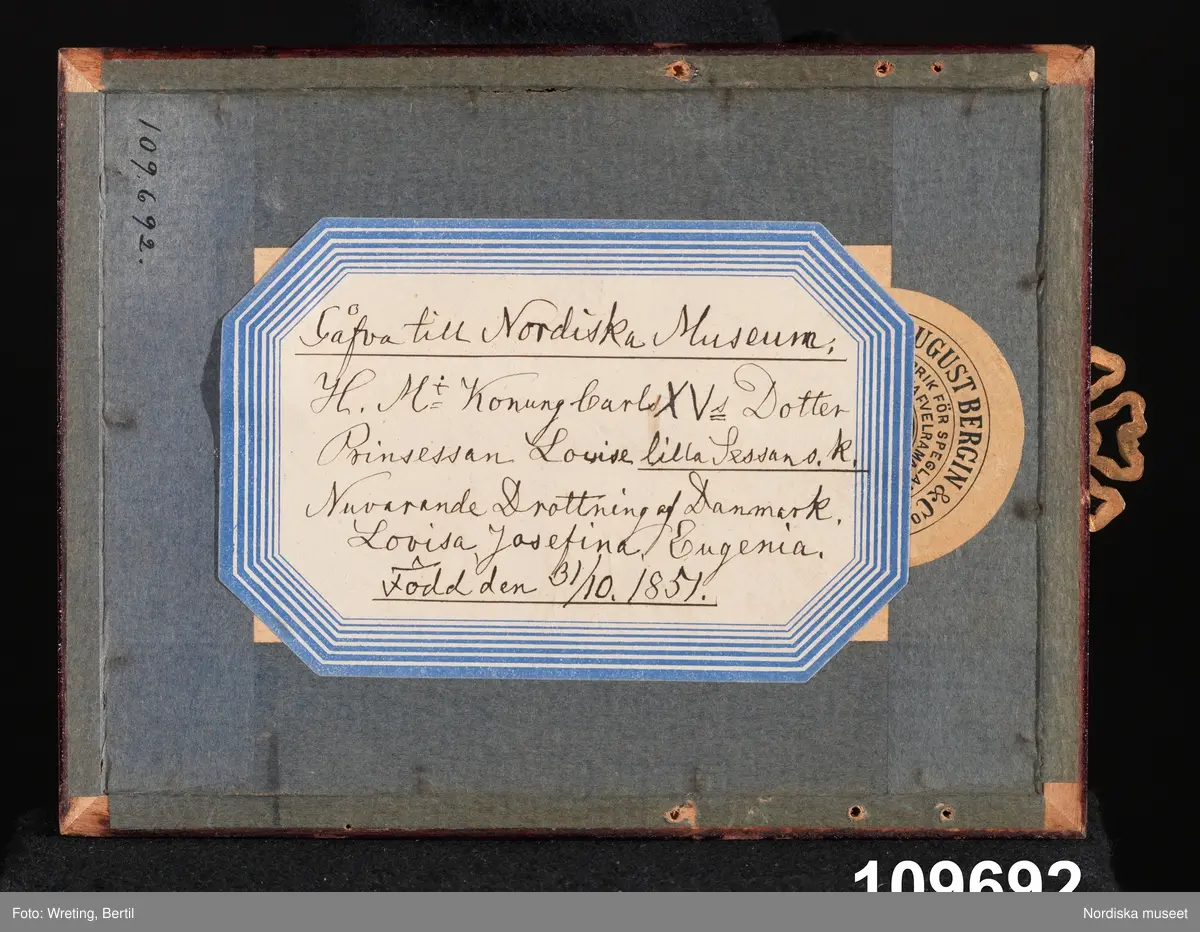 109.692.
Gåfva till Nordiska Museum.
H. Mt Konung Carls XVs Dotter
Prinsessan Lovise lilla Sessan s. k.
Nuvarande Drottning af Danmark.
Lovisa, Josefina, Eugenia.
Född den 31/10. 1851.
AUGUST BERGIN & Co
FÖR SPEGLAR
109692
Foto: Wreting, Bertil
Nordiska museet